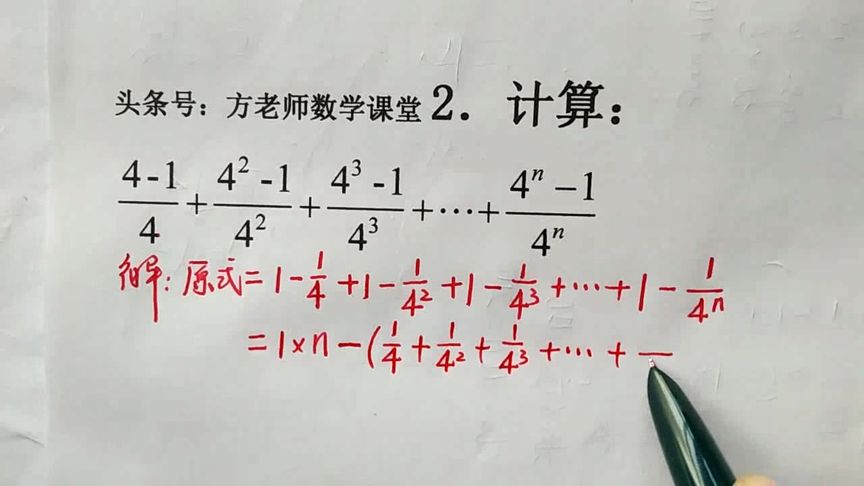 头条号：方老师数学课堂 2. 计算：
\frac{4-1}{4}+\frac{4^2-1}{4^2}+\frac{4^3-1}{4^3}+\cdots+\frac{4^n-1}{4^n}
解：原式=1-\frac{1}{4}+1-\frac{1}{4^2}+1-\frac{1}{4^3}+\cdots+1-\frac{1}{4^n}
=1×n-(\frac{1}{4}+\frac{1}{4^2}+\frac{1}{4^3}+\cdots+—